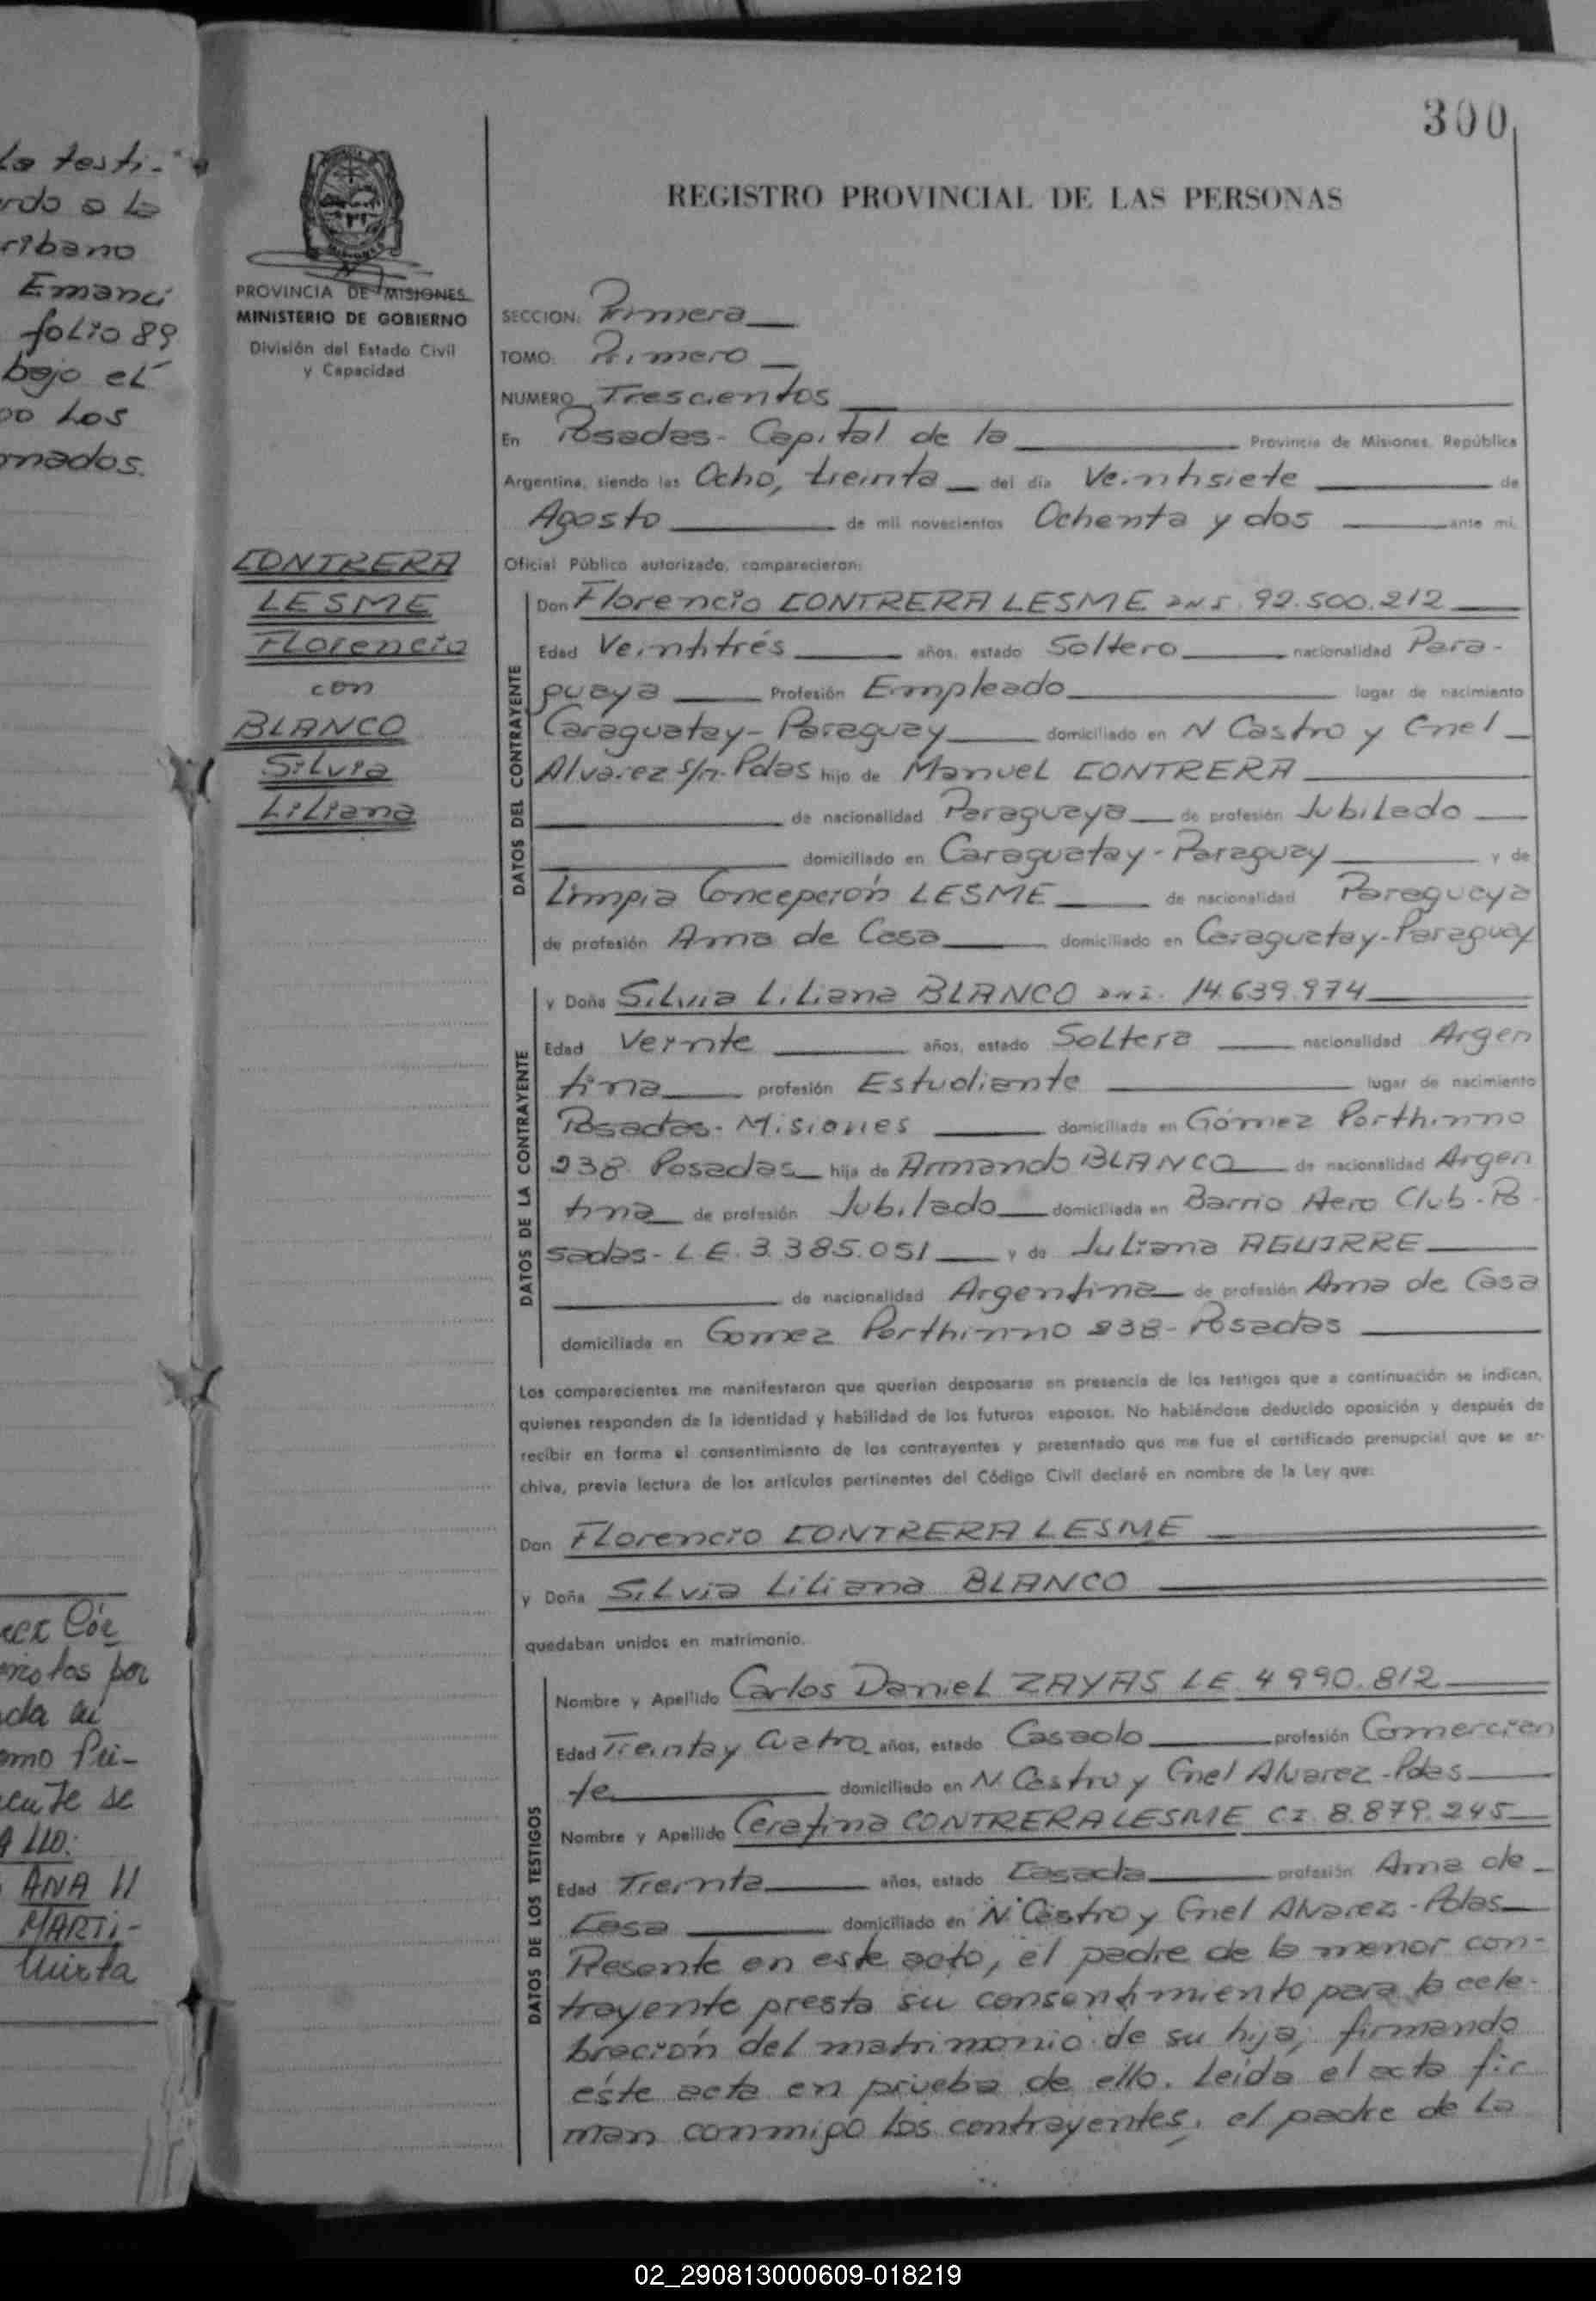 la testi-
rdo a la
ribano
Emanci
folio 89
bajo el
po los
mados.
300
REGISTRO PROVINCIAL DE LAS PERSONAS
MISIONES
PROVINCIA DE MISIONES
MINISTERIO DE GOBIERNO
División del Estado Civil
y Capacidad
SECCION: Primera
TOMO: Primero
NUMERO Trescientos
En Posadas- Capital de la Provincia de Misiones, República
Argentina, siendo las Ocho, treinta del día Veintisiete de
Agosto de mil novecientos Ochenta y dos ante mí,
Oficial Público autorizado, comparecieron:
CONTRERA
LESME
Florencio
con
BLANCO
Silvia
Liliana
DATOS DEL CONTRAYENTE
Don Florencio CONTRERA LESME DNI. 92.500.212
Edad Veintitrés años, estado Soltero nacionalidad Para-
guaya Profesión Empleado lugar de nacimiento
Caraguatay- Paraguay domiciliado en N Castro y Cnel
Alvarez s/n. Pdas hijo de Manuel CONTRERA
de nacionalidad Paraguaya de profesión Jubilado
domiciliado en Caraguatay- Paraguay y de
Limpia Concepción LESME de nacionalidad Paraguaya
de profesión Ama de Casa domiciliado en Caraguatay-Paraguay
DATOS DE LA CONTRAYENTE
y Doña Silvia Liliana BLANCO DNI. 14.639.974
Edad Veinte años, estado Soltera nacionalidad Argen
tina profesión Estudiante lugar de nacimiento
Posadas- Misiones domiciliada en Gómez Porthinno
238. Posadas hija de Armando BLANCO de nacionalidad Argen
tina de profesión Jubilado domiciliada en Barrio Aero Club-Po-
sadas- L.E. 3.385.051 y de Juliana AGUIRRE
de nacionalidad Argentina de profesión Ama de Casa
domiciliada en Gomez Porthinno 238- Posadas
Los comparecientes me manifestaron que querían desposarse en presencia de los testigos que a continuación se indican,
quienes responden de la identidad y habilidad de los futuros esposos. No habiéndose deducido oposición y después de
recibir en forma el consentimiento de los contrayentes y presentado que me fue el certificado prenupcial que se ar-
chiva, previa lectura de los artículos pertinentes del Código Civil declaré en nombre de la Ley que:
Don Florencio CONTRERA LESME
y Doña Silvia Liliana BLANCO
quedaban unidos en matrimonio.
DATOS DE LOS TESTIGOS
Nombre y Apellido Carlos Daniel ZAYAS LE. 4 990.812
Edad Treinta y Cuatro años, estado Casado profesión Comercian
te domiciliado en N. Castro y Cnel Alvarez -Pdas
Nombre y Apellido Cerafina CONTRERA LESME CI. 8.879.245
Edad Treinta años, estado Casada profesión Ama de
Casa domiciliado en N. Castro y Cnel Alvarez - Pdas
Presente en este acto, el padre de la menor con-
trayente presta su consentimiento para la cele-
bración del matrimonio de su hija, firmando
éste acta en prueba de ello. Leída el acta fir
man conmigo los contrayentes, el padre de la
notas por
ada
omo Pri-
se
ANA
MARTI-
02_290813000609-018219